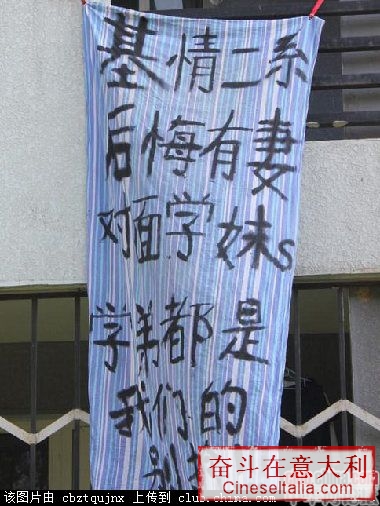 基情二系
后悔有妻
对面学妹s
学弟都是
我们的
别
奋斗在意大利
CineseItalia.com
该图片由 cbztqujnx 上传到 club.china.com